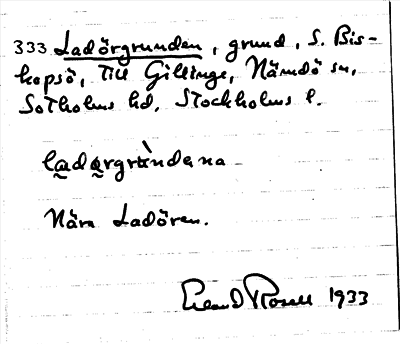 333 Ladörgrunden, grund, S. Bis-
kopsö, till Gillinge, Nämdö sn,
Sotholms hd, Stockholms l.
lade̮rgrùndəna
Nära Ladören.
Erland Rosell 1933